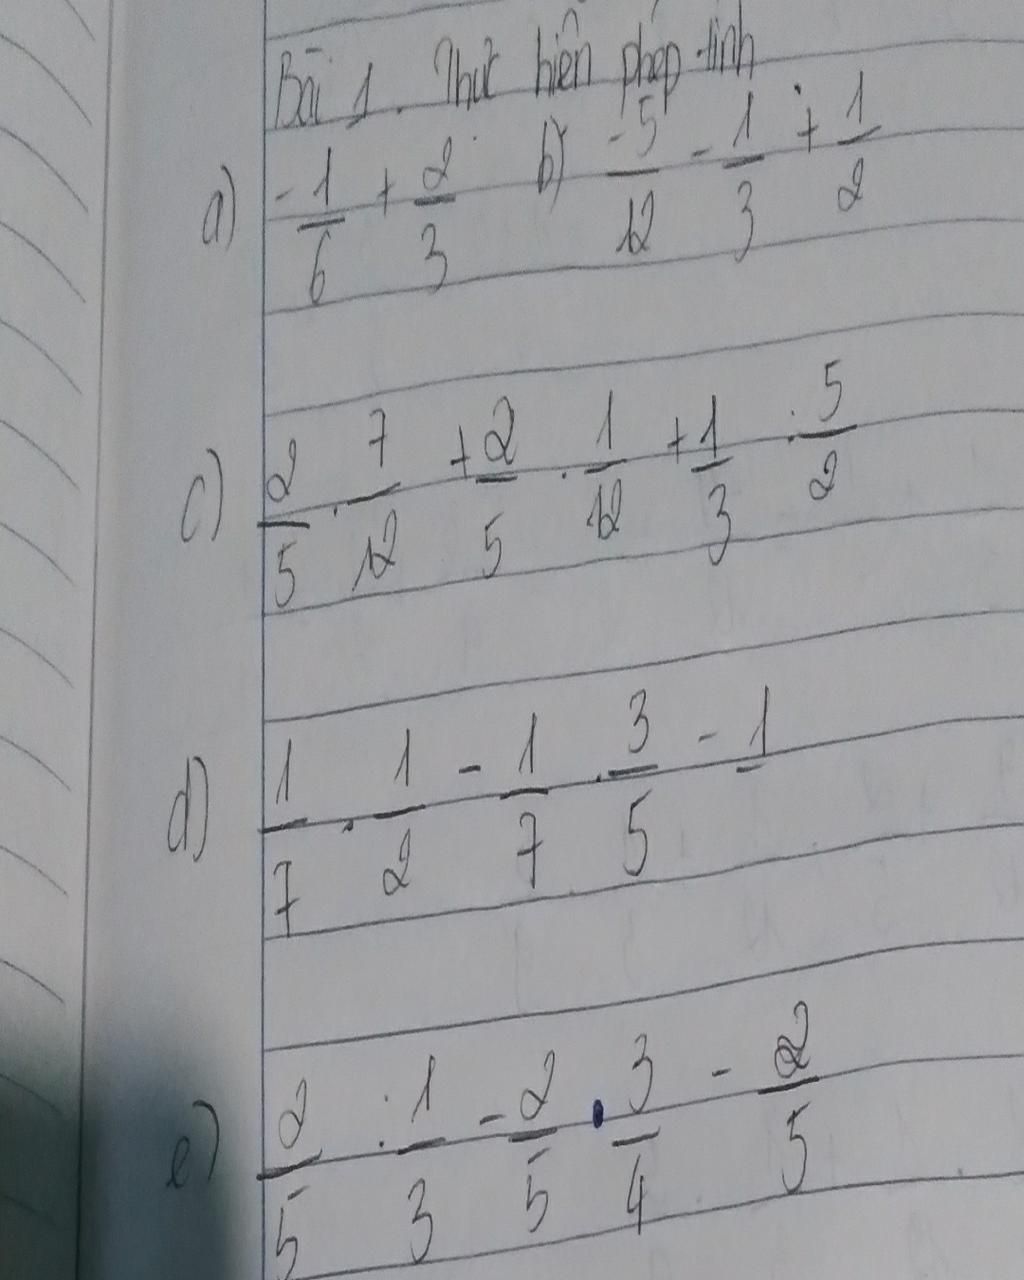 Bài 1. Thưc hiên phép tính
a) -1/6 + 2/3 b) -5/12 - 1/3 + 1/2
c) 2/5 . 7/12 + 2/5 . 1/12 + 1/3 . 5/2
d) 1/7 . 1/2 - 1/7 . 3/5 - 1
e) 2/5 : 1/3 - 2/5 . 3/4 - 2/5